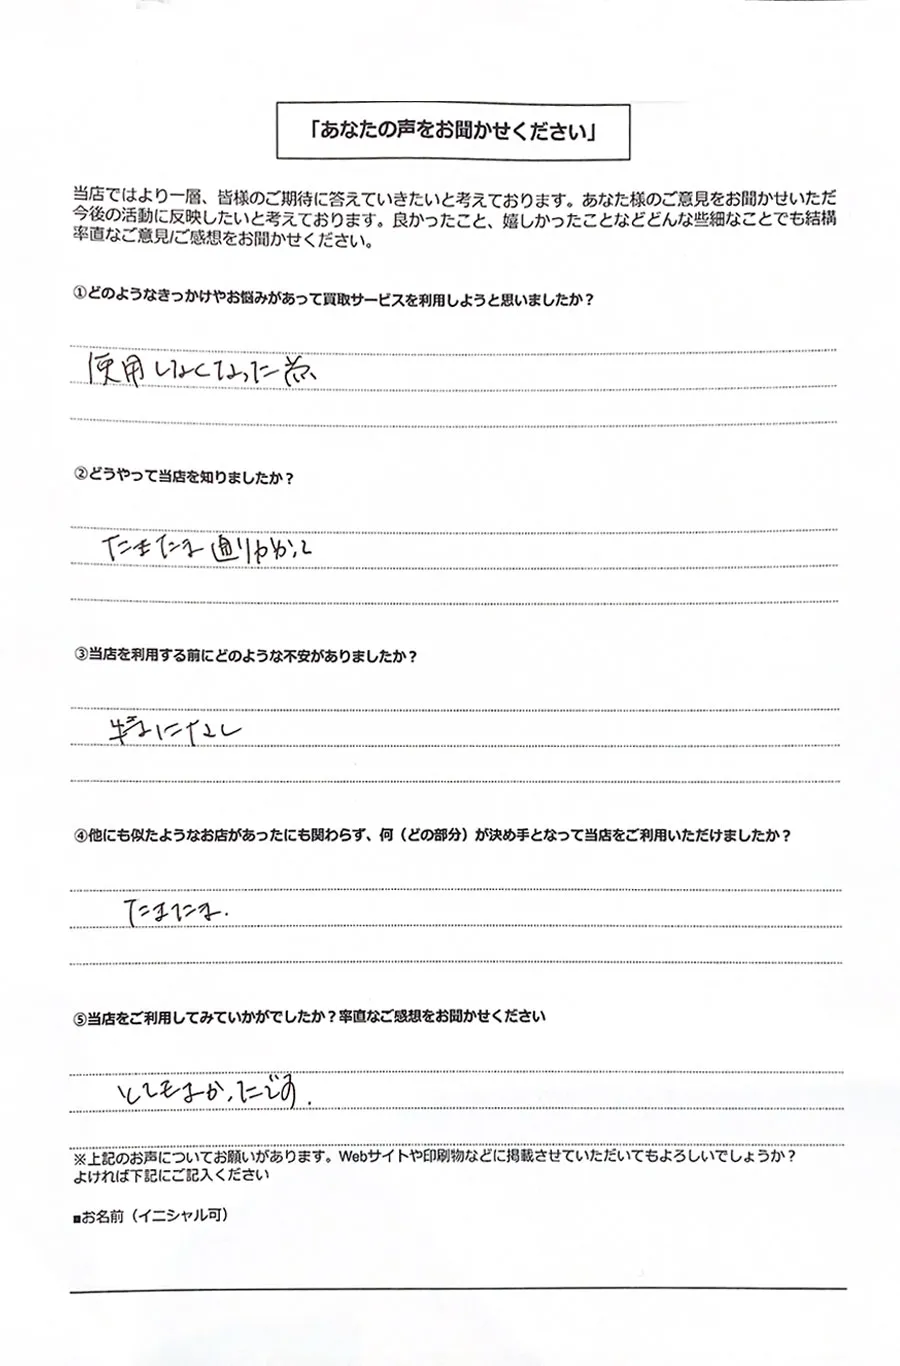 「あなたの声をお聞かせください」
当店ではより一層、皆様のご期待に答えていきたいと考えております。あなた様のご意見をお聞かせいただ
今後の活動に反映したいと考えております。良かったこと、嬉しかったことなどどんな些細なことでも結構
率直なご意見/ご感想をお聞かせください。
①どのようなきっかけやお悩みがあって買取サービスを利用しようと思いましたか？
使用しなくなった為
②どうやって当店を知りましたか？
たまたま通りかかって
③当店を利用する前にどのような不安がありましたか？
特になし
④他にも似たようなお店があったにも関わらず、何（どの部分）が決め手となって当店をご利用いただけましたか？
たまたま.
⑤当店をご利用してみていかがでしたか？率直なご感想をお聞かせください
とてもよかったです.
※上記のお声についてお願いがあります。Webサイトや印刷物などに掲載させていただいてもよろしいでしょうか？
よければ下記にご記入ください
■お名前（イニシャル可）